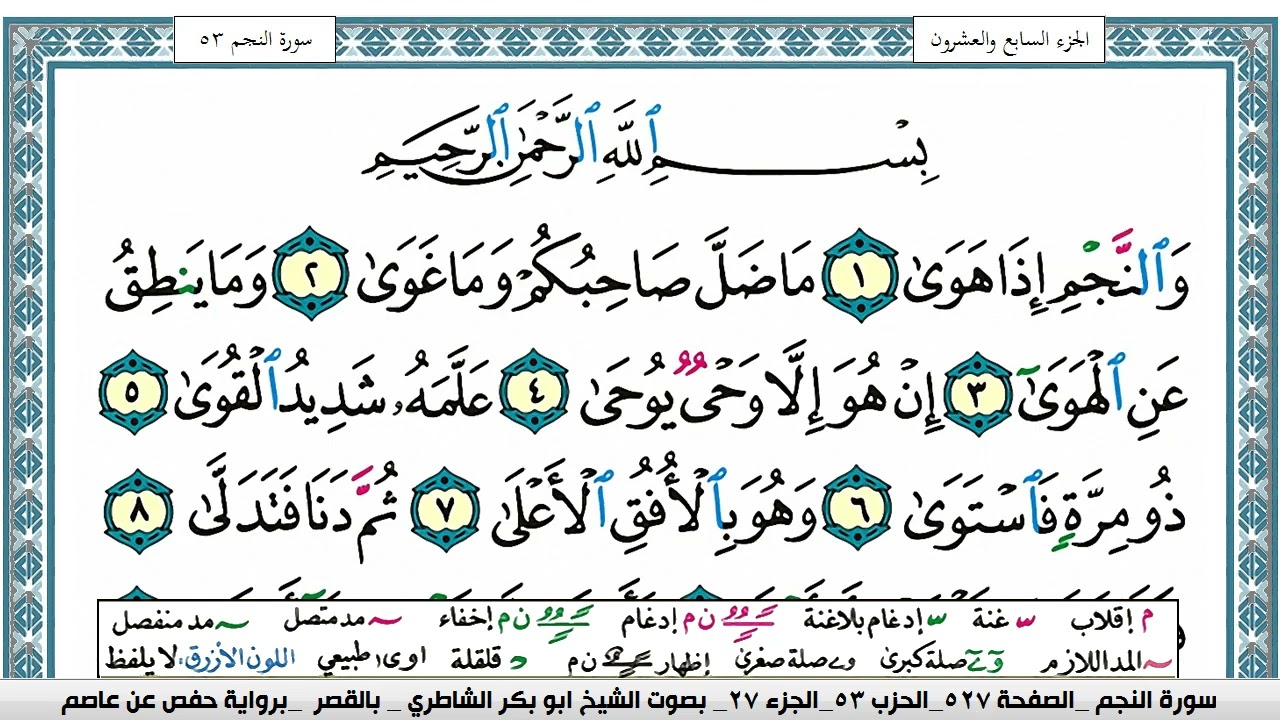 سورة النجم ٥٣
الجزء السابع والعشرون
بِسْمِ ٱللَّهِ ٱلرَّحْمَٰنِ ٱلرَّحِيمِ
وَٱلنَّجْمِ إِذَا هَوَىٰ ١ مَا ضَلَّ صَاحِبُكُمْ وَمَا غَوَىٰ ٢ وَمَا يَنطِقُ
عَنِ ٱلْهَوَىٰٓ ٣ إِنْ هُوَ إِلَّا وَحْىٌ يُوحَىٰ ٤ عَلَّمَهُۥ شَدِيدُ ٱلْقُوَىٰ ٥
ذُو مِرَّةٍ فَٱسْتَوَىٰ ٦ وَهُوَ بِٱلْأُفُقِ ٱلْأَعْلَىٰ ٧ ثُمَّ دَنَا فَتَدَلَّىٰ ٨
م إقلاب غنة إدغام بلاغنة ن م إدغام ن م إخفاء مد متصل مد منفصل
المد اللازم صلة كبرى صلة صغرى إظهار ن م قلقلة اوى طبيعي اللون الأزرق: لا يلفظ
سورة النجم _الصفحة ٥٢٧_الحزب ٥٣_الجزء ٢٧_ بصوت الشيخ ابو بكر الشاطري _ بالقصر _برواية حفص عن عاصم